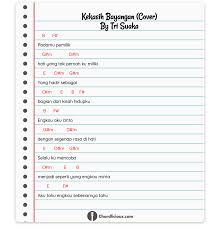 Kekasih Bayangan (Cover)
By Tri Suaka
B F#
Padamu pemilik
G#m D#m
hati yang tak pernah ku miliki
E D#m G#m
Yang hadir sebagai
C#m E B F#
bagian dari kisah hidupku
B F#
Engkau aku cinta
G#m D#m
dengan segenap rasa di hati
E D#m G#m
Selalu ku mencoba
C#m E B
menjadi seperti yang engkau minta
E F#
Aku tahu engkau sebenarnya tahu
Chordlicious.com